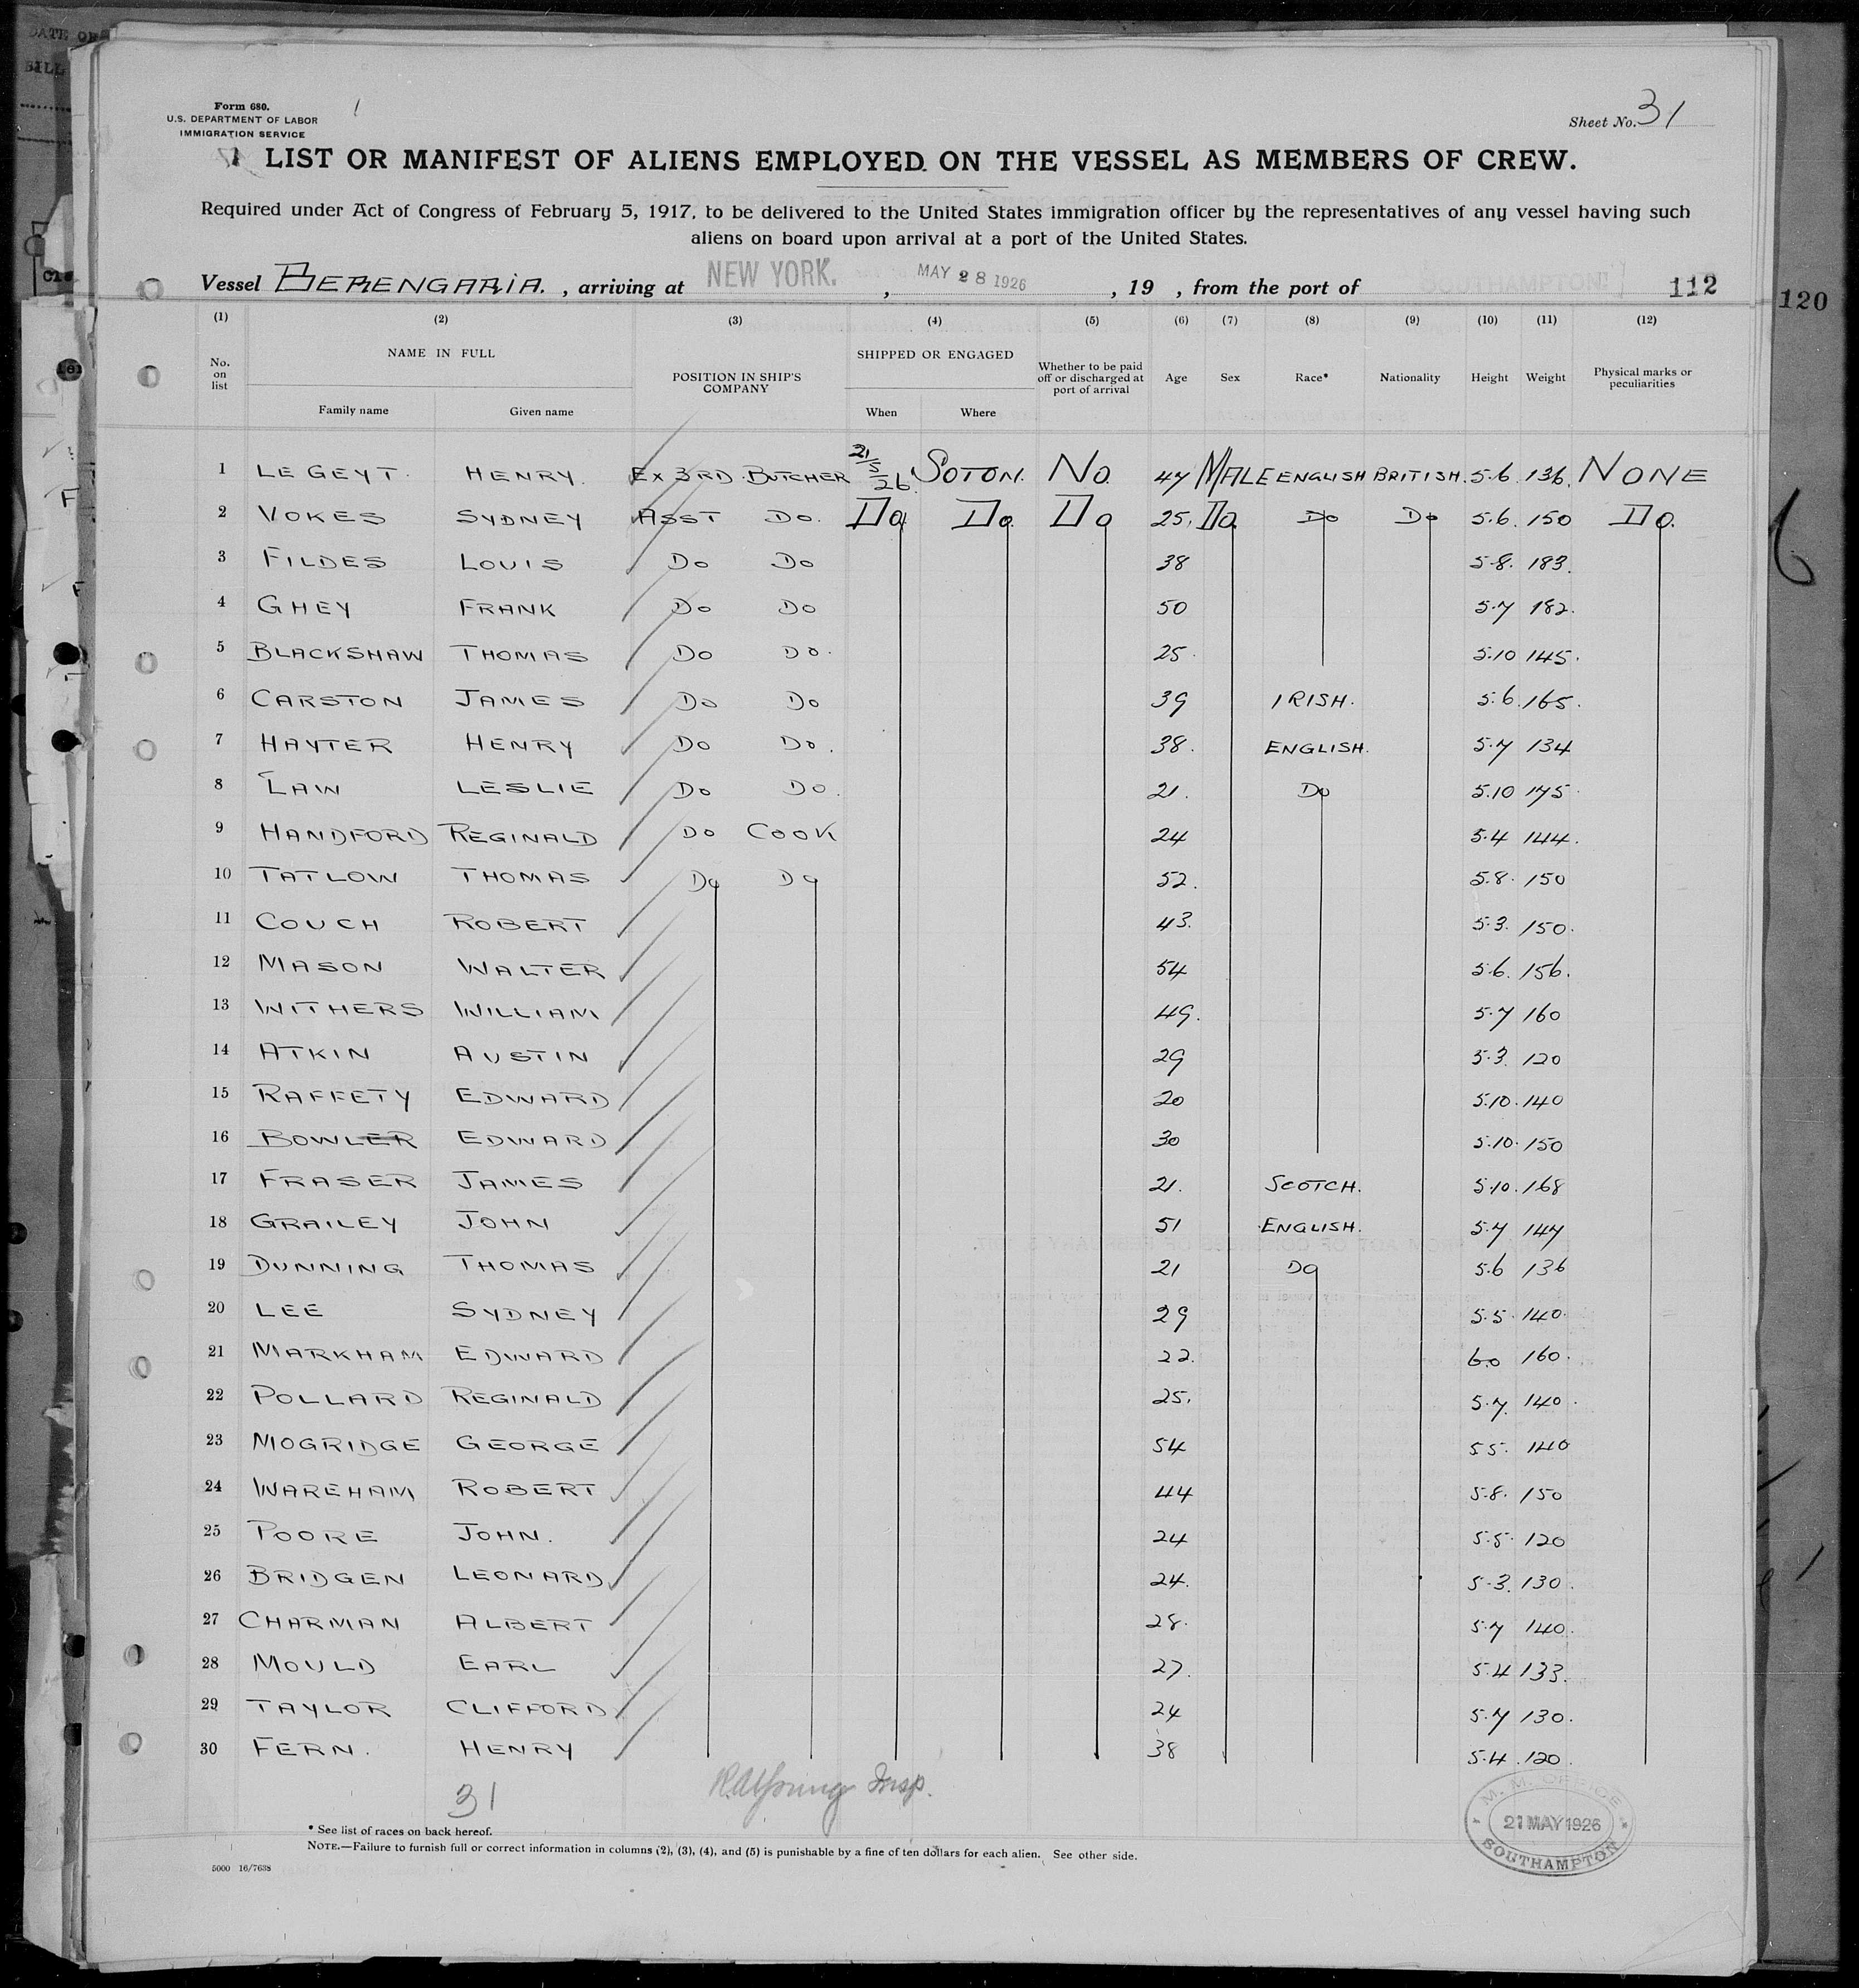 DATE OF
BILL
Form 680.
U.S. DEPARTMENT OF LABOR
IMMIGRATION SERVICE
Sheet No. 31
LIST OR MANIFEST OF ALIENS EMPLOYED ON THE VESSEL AS MEMBERS OF CREW.
Required under Act of Congress of February 5, 1917, to be delivered to the United States immigration officer by the representatives of any vessel having such
aliens on board upon arrival at a port of the United States.
Vessel BERENGARIA. , arriving at NEW YORK. , MAY 28 1926 , 19 , from the port of SOUTHAMPTON 112
120
(1) (2) (3) (4) (5) (6) (7) (8) (9) (10) (11) (12)
No. on list NAME IN FULL POSITION IN SHIP'S COMPANY SHIPPED OR ENGAGED Whether to be paid off or discharged at port of arrival Age Sex Race* Nationality Height Weight Physical marks or peculiarities
Family name Given name When Where
1 LE GEYT. HENRY. EX 3RD BUTCHER 21/5/26 SOTON. NO. 47 MALE ENGLISH BRITISH. 5.6. 136. NONE
2 VOKES SYDNEY ASST DO. DO DO. DO 25. DO DO DO 5.6. 150 DO.
3 FILDES LOUIS DO DO 38 5.8. 183.
4 GHEY FRANK DO DO 50 5.7 182.
5 BLACKSHAW THOMAS DO DO. 25. 5.10 145.
6 CARSTON JAMES DO DO 39 IRISH. 5.6. 165.
7 HAYTER HENRY DO DO. 38. ENGLISH. 5.7 134
8 LAW LESLIE DO DO. 21. DO 5.10 175.
9 HANDFORD REGINALD DO COOK 24 5.4 144.
10 TATLOW THOMAS DO DO 52. 5.8. 150
11 COUCH ROBERT 43. 5.3. 150.
12 MASON WALTER 54 5.6. 156.
13 WITHERS WILLIAM 49. 5.7 160
14 ATKIN AUSTIN 29 5.3. 120
15 RAFFETY EDWARD 20 5.10. 140
16 BOWLER EDWARD 30 5.10. 150
17 FRASER JAMES 21. SCOTCH. 5.10. 168
18 GRAILEY JOHN 51 ENGLISH. 5.7 147
19 DUNNING THOMAS 21 DO 5.6 136
20 LEE SYDNEY 29 5.5. 140.
21 MARKHAM EDWARD 22. 6.0 160.
22 POLLARD REGINALD 25. 5.7. 140.
23 MOGRIDGE GEORGE 54 5 5. 140
24 WAREHAM ROBERT 44 5.8. 150
25 POORE JOHN. 24 5.5. 120
26 BRIDGEN LEONARD 24. 5.3. 130.
27 CHARMAN ALBERT 28. 5.7 140.
28 MOULD EARL 27. 5.4 133.
29 TAYLOR CLIFFORD 24 5.7 130.
30 FERN. HENRY 38 5.4. 120.
31
Insp.
M. M. OFFICE
21 MAY 1926
SOUTHAMPTON
* See list of races on back hereof.
NOTE.—Failure to furnish full or correct information in columns (2), (3), (4), and (5) is punishable by a fine of ten dollars for each alien. See other side.
5000 16/7638